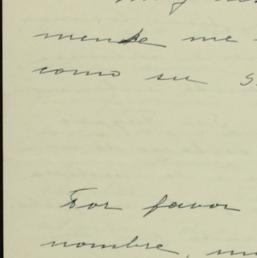 mente me
como su s
Por favor
nombre, mu